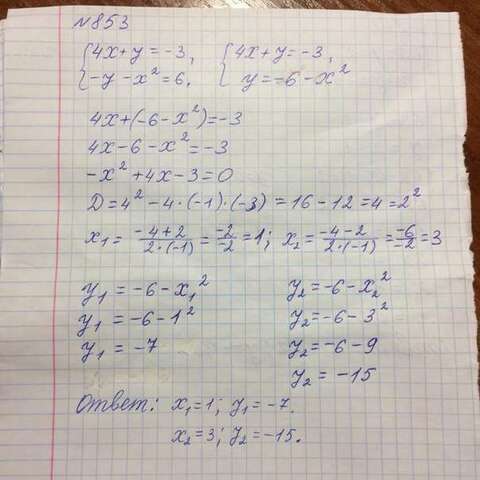 №853
{4x+y=-3, {4x+y=-3,
{-y-x²=6. {y=-6-x²
4x+(-6-x²)=-3
4x-6-x²=-3
-x²+4x-3=0
D=4²-4·(-1)·(-3)=16-12=4=2²
x₁=\frac{-4+2}{2·(-1)}=\frac{-2}{-2}=1; x₂=\frac{-4-2}{2·(-1)}=\frac{-6}{-2}=3
y₁=-6-x₁² y₂=-6-x₂²
y₁=-6-1² y₂=-6-3²
y₁=-7 y₂=-6-9
y₂=-15
Ответ: x₁=1; y₁=-7.
x₂=3; y₂=-15.